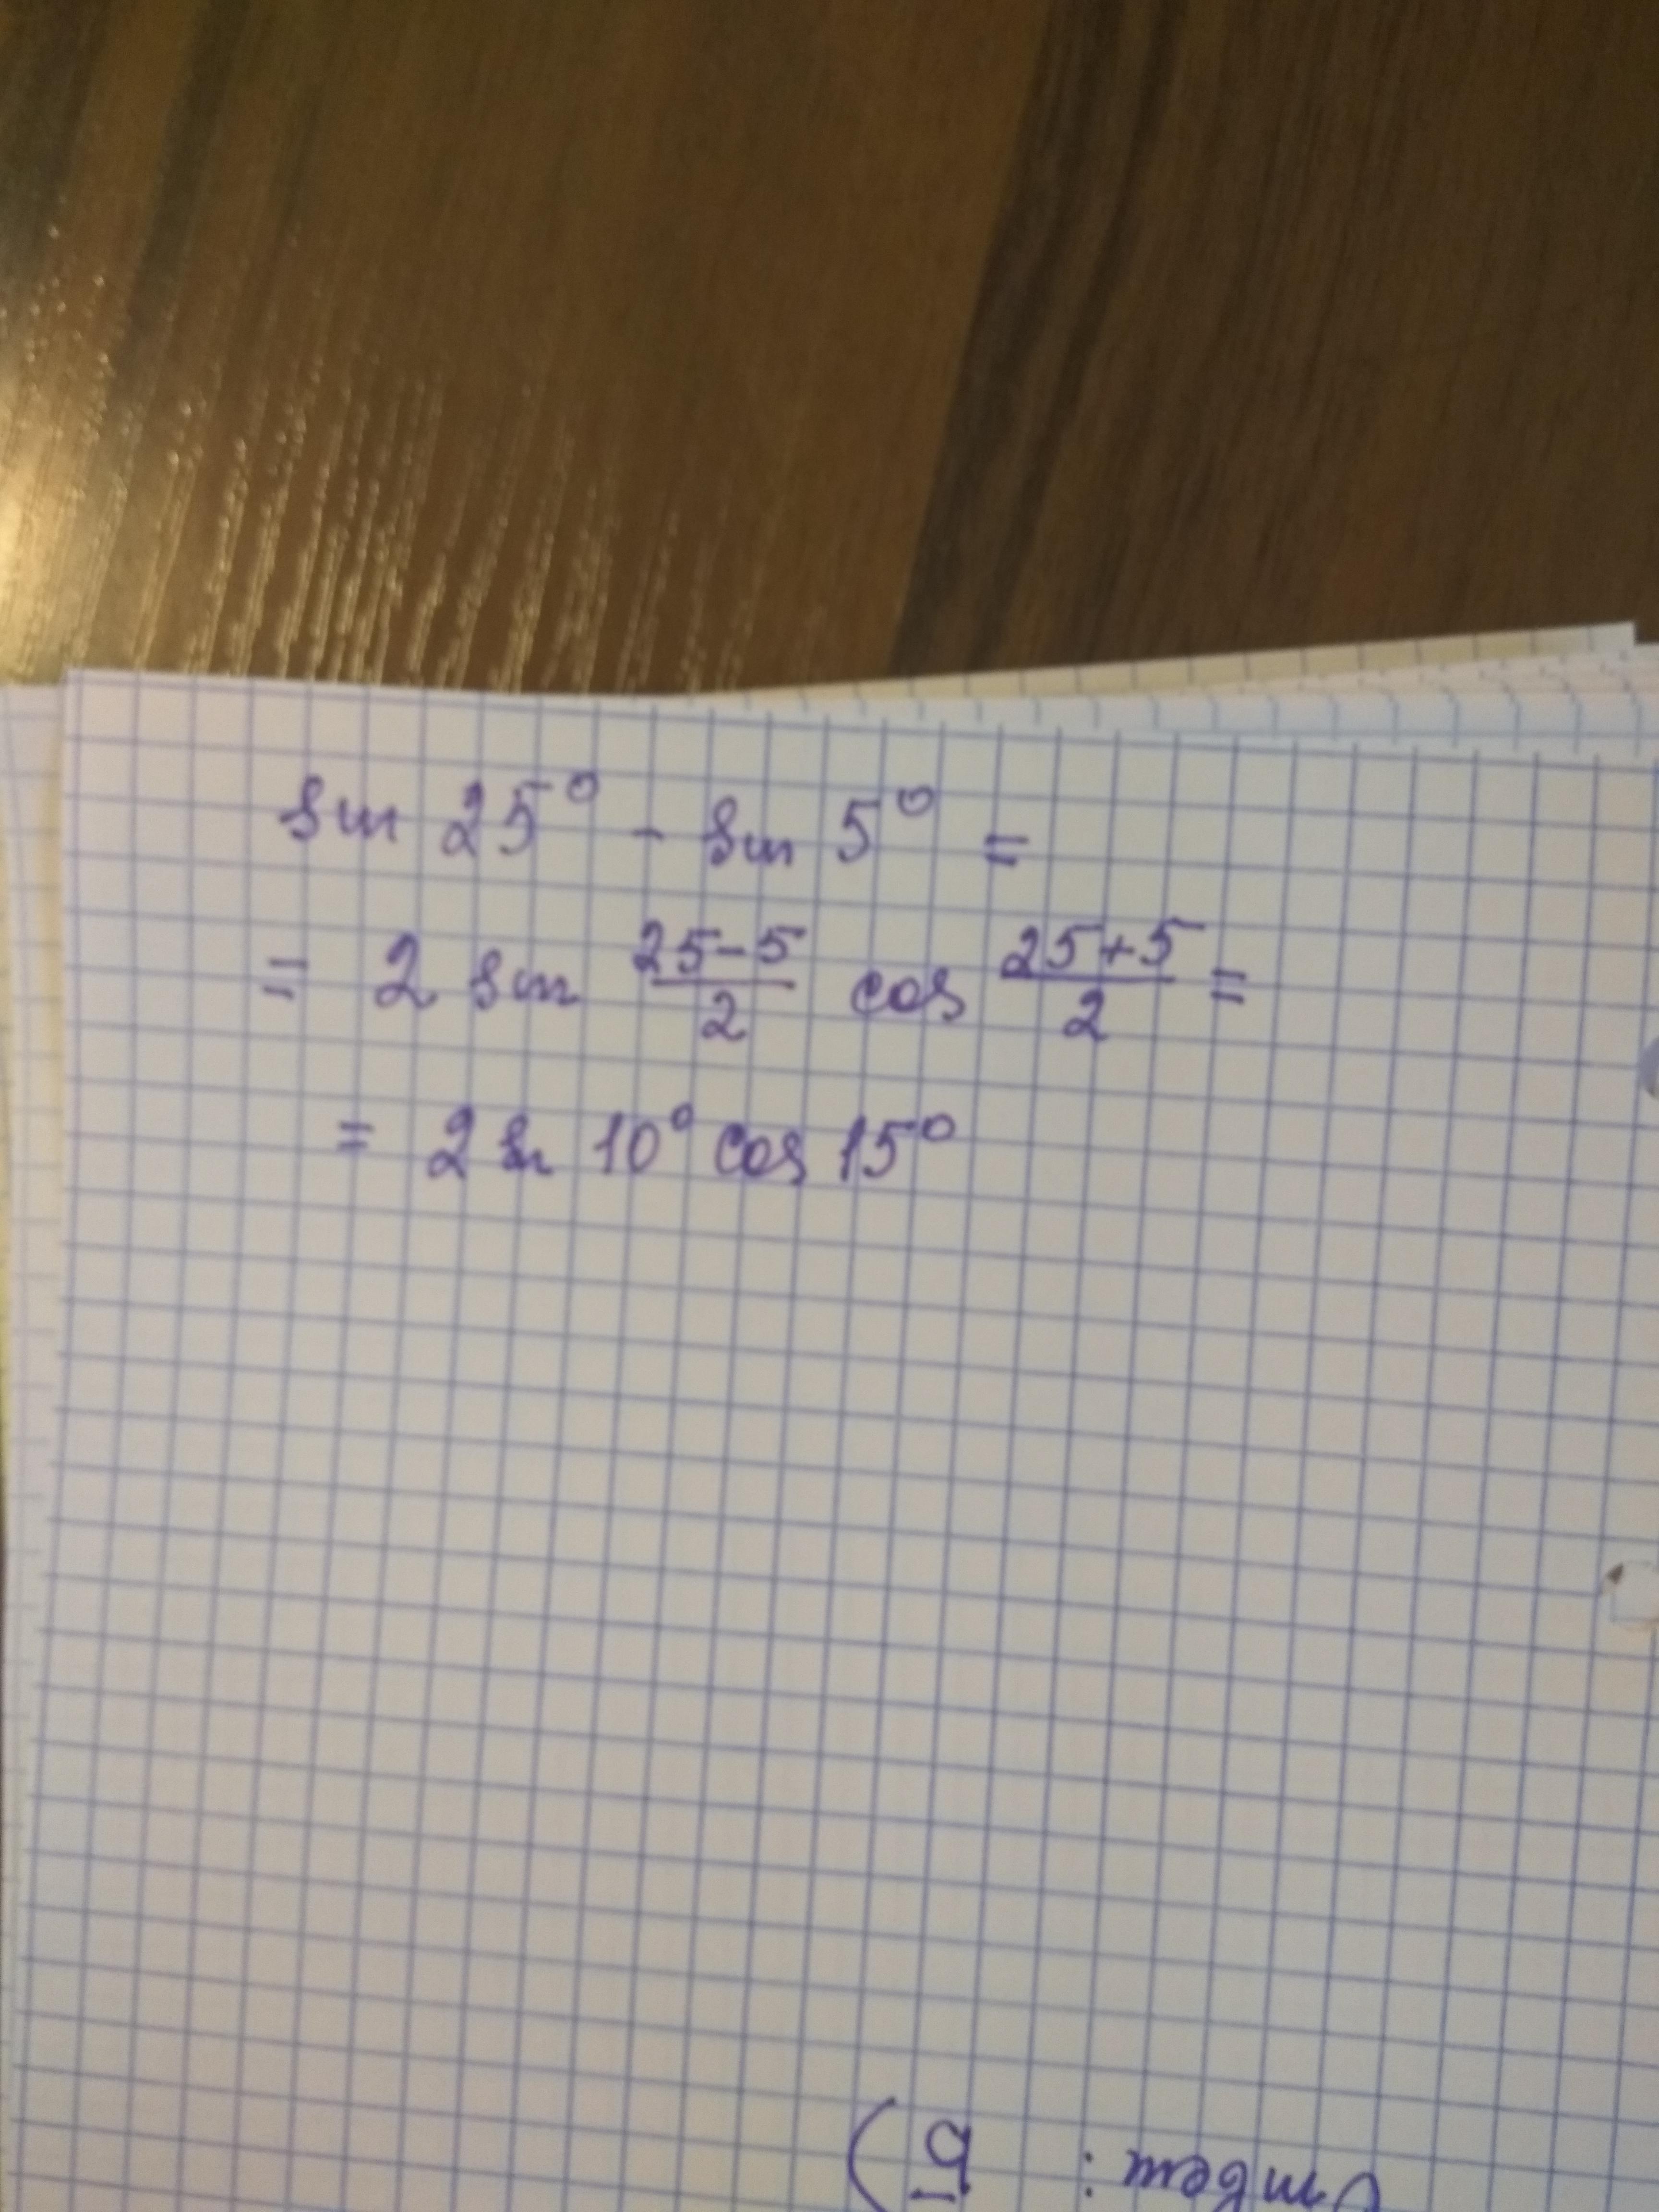 sin 25° - sin 5° =
= 2 sin (25-5)/2 cos (25+5)/2 =
= 2 sin 10° cos 15°
Ответ: б)